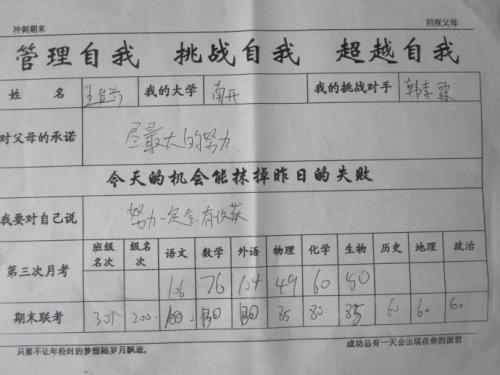 冲刺期末 回报父母
管理自我 挑战自我 超越自我
姓名 我的大学 南开 我的挑战对手
对父母的承诺 尽最大的努力
今天的机会能抹掉昨日的失败
我要对自己说 努力一定会有收获
班级名次 级名次 语文 数学 外语 物理 化学 生物 历史 地理 政治
第三次月考 106 76 104 49 60 50
期末联考 200 130 85 80 85 60 60 60
只要不让年轻时的梦想随岁月飘逝。 成功总有一天会出现在你的面前